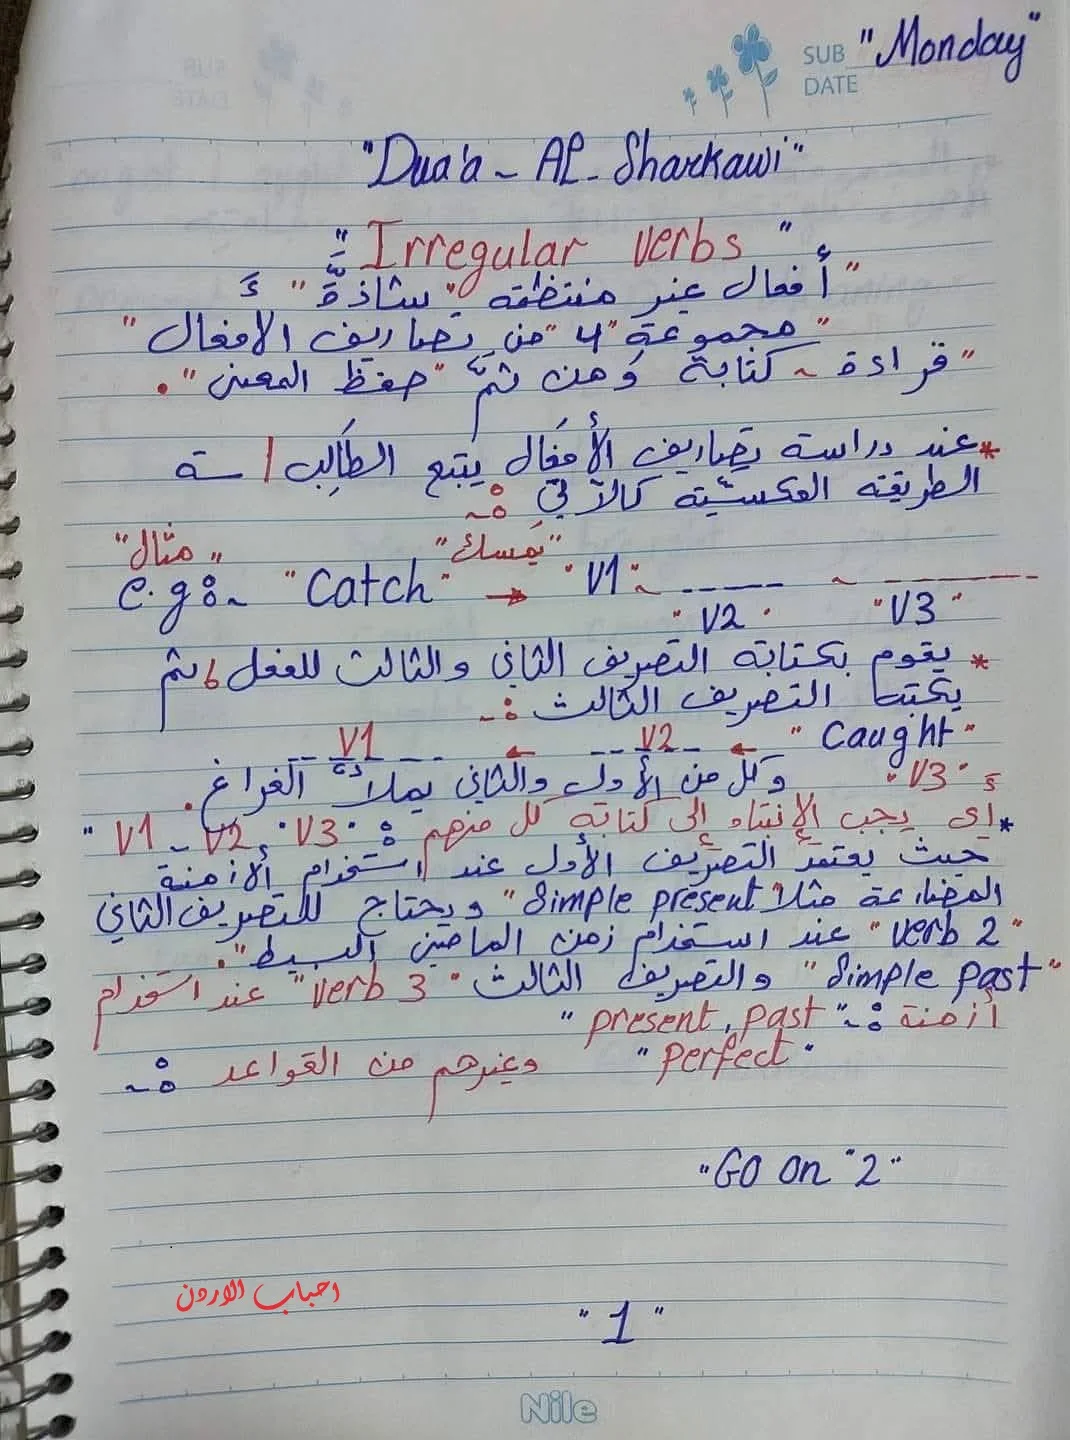 SUB "Monday"
DATE
"Dua'a - AL - Sharkawi"
"Irregular verbs"
"أفعال غير منتظمه "شاذة"
"مجموعة "4" من تصاريف الافعال"
"قراءة - كتابة ومن ثمَّ "حفظ المعنى".
*عند دراسة تصاريف الأفعال يتبع الطالِب / ـة
الطريقه العكسيّة كالآتي :-
"مثال" "يَمسك"
e.g:- "Catch" → "V1:- ------ ~ ------
"V2" "V3"
* يقوم بكتابة التصريف الثاني والثالث للفعل، ثم
يكتب التصريف الثالث :-
"Caught" ← --- V2 --- ← --- V1 ---
"V3" وكل من الأول والثاني يملأ الفراغ.
*اي يجب الإنتباه إلى كتابة كل منهم : "V3", V2 - V1"
حيث يعتمد التصريف الأول عند استخدام الأزمنة
المضارعة مثلا Simple present" ويحتاج للتصريف الثاني
"verb 2" عند استخدام زمن الماضي البسيط".
"Simple past" والتصريف الثالث "verb 3" عند استخدام
أزمنة :- "present, past"
"perfect" وغيرهم من القواعد :-
"Go on "2"
احباب الاردن
"1"
Nile